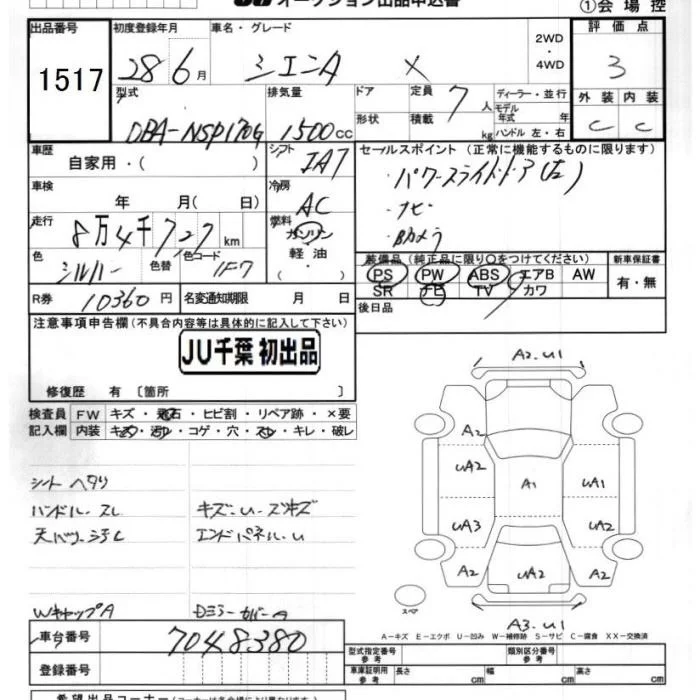 オークション出品申込書
①会場控
出品番号 1517
初度登録年月 28 6月
車名・グレード シエンタ X
2WD
4WD
評価点 3
型式 DBA-NSP170G
排気量 1500cc
ドア
形状
定員 7人
積載 kg
ディーラー・並行
モデル年式 年
ハンドル 左・右
外装 C
内装 C
車歴 自家用・( )
シフト IA7
セールスポイント (正常に機能するものに限ります)
・パワースライドドア(左)
・ナビ
・Bカメラ
車検 年 月( 日)
冷房 AC
走行 8万4千727km
燃料 ガソリン
軽油
色 シルバー
色替
色コード 1F7
装備品 (純正品に限り○をつけてください)
PS PW ABS エアB AW
SR ナビ TV カワ
新車保証書
有・無
R券 10360円
名変通知期限 月 日
後日品
注意事項申告欄(不具合内容等は具体的に記入して下さい)
JU千葉 初出品
修復歴 有 〔箇所 〕
検査員記入欄
FW キズ・飛石・ヒビ割・リペア跡・×要
内装 キズ・汚れ・コゲ・穴・スレ・キレ・破レ
シートヘタリ
ハンドル・スレ
キズ・U・スリキズ
エンドパネル・U
WキャップA
DミラーカバーA
A2.U1
A2
UA2 A1 UA1
UA3 UA2
A2 UA2 A2
スペア
A3.U1
A-キズ E-エクボ U-凹み W-補修跡 S-サビ C-腐食 XX-交換済
車台番号 7048380
登録番号
型式指定番号
参考
類別区分番号
参考
車庫証明用
参考
長さ cm 幅 cm 高さ cm
希望出品コーナー